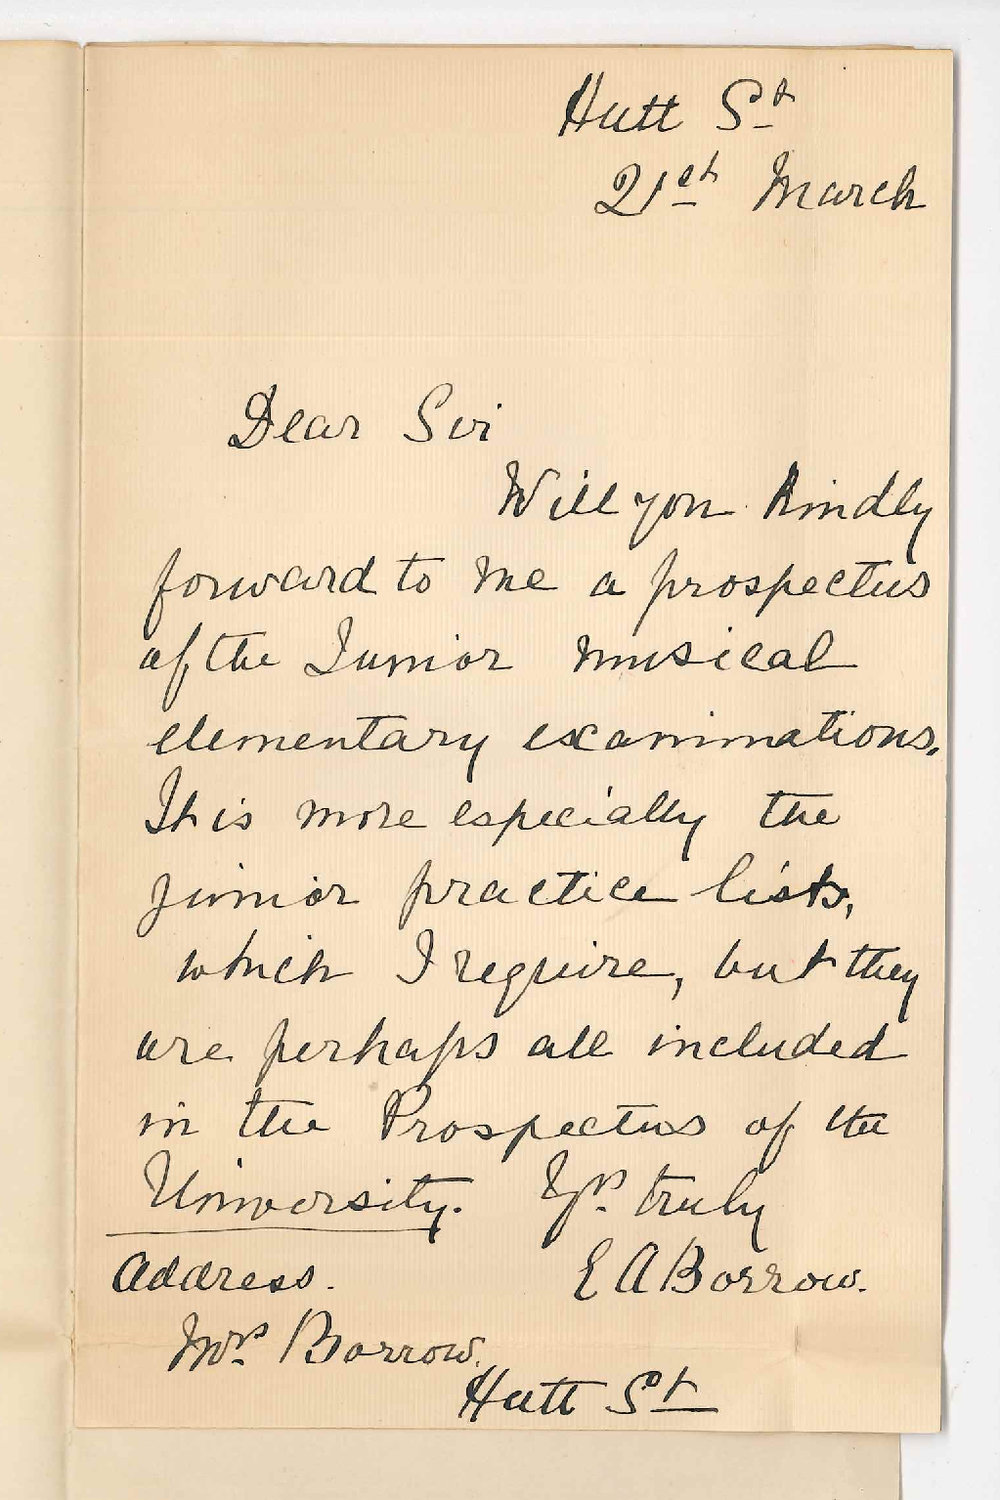 Hutt St
21st March
Dear Sir
Will you kindly
forward to me a prospectus
of the Junior musical
elementary examinations.
It is more especially the
junior practice lists,
which I require, but they
are perhaps all included
in the Prospectus of the
University. Yrs. truly
Address. E A Borrow.
Mrs. Borrow.
Hutt St